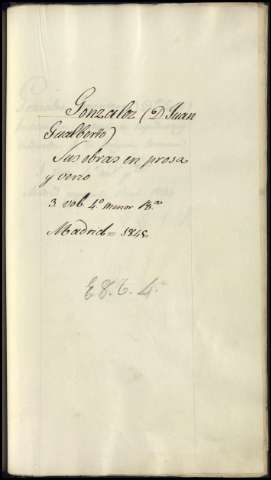 Gonzalez (D. Juan
Gualberto)
Sus obras en prosa
y verso
3 vol. 4º menor
Madrid = 1845.
E 8. 6. 4.